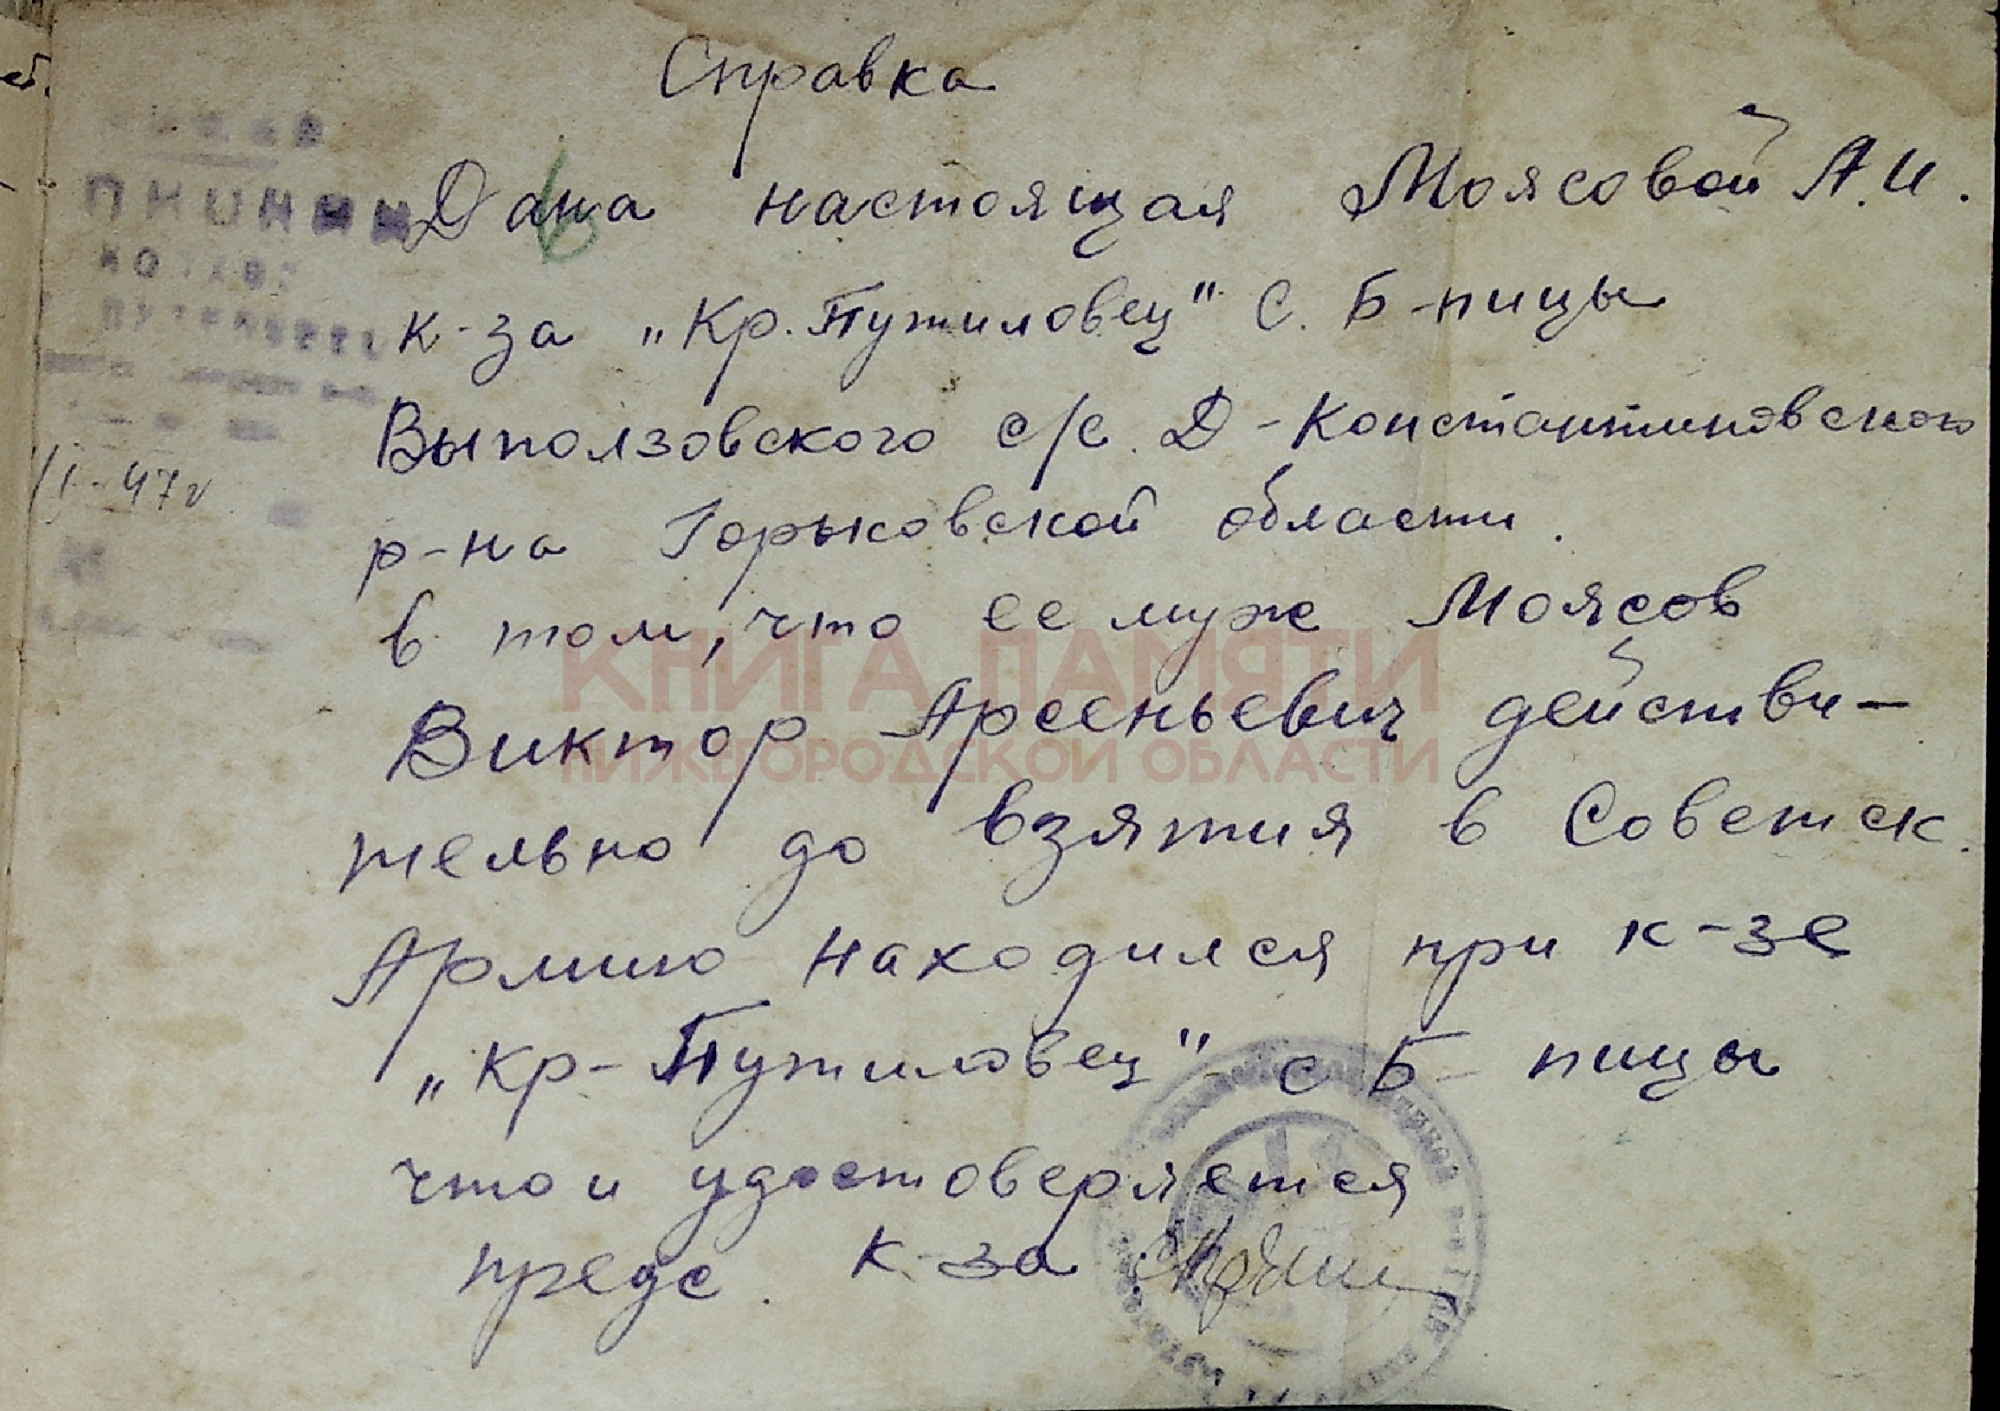 Справка
Дана настоящая Моясовой А.И.
к-за „Кр. Путиловец" с. Б-пицы
Выползовского с/с. Д-Константиновского
р-на Горьковской области.
в том, что ее муж Моясов
Виктор Арсеньевич действи-
тельно до взятия в Советск.
Армию находился при к-зе
„Кр-Путиловец" с Б- пицы
что и удостоверяется
предс. к-за
47г
КНИГА ПАМЯТИ
НИЖЕГОРОДСКОЙ ОБЛАСТИ